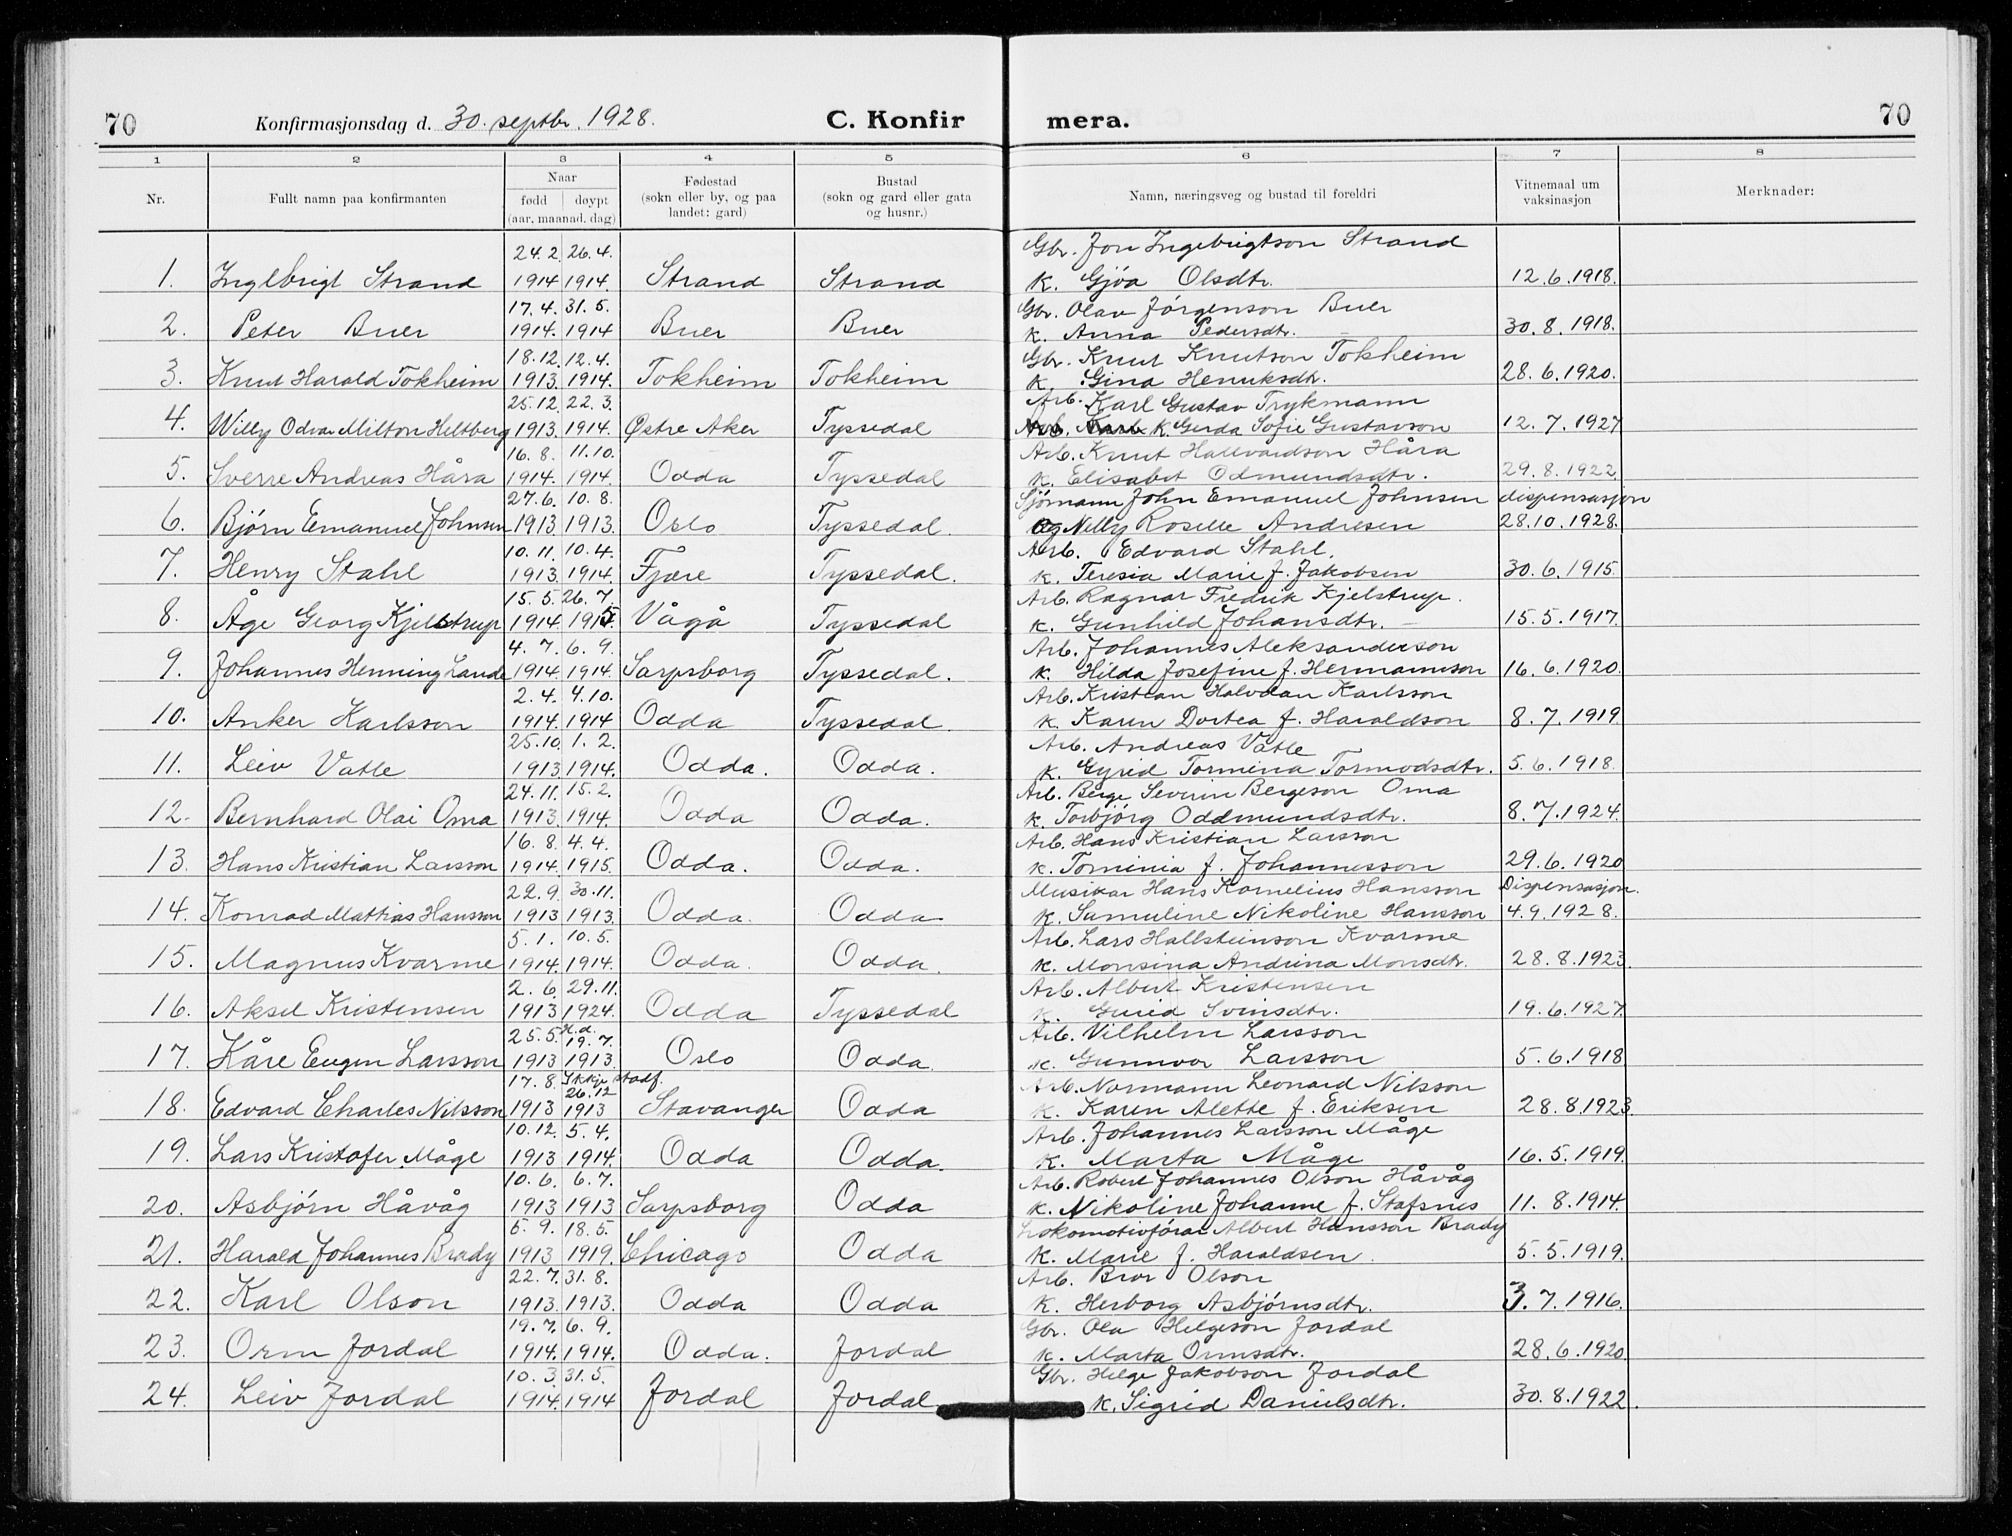 70 Konfirmasjonsdag d. 30. septbr. 1928. C. Konfir mera. 70
1 2 3 4 5 6 7 8
Nr. Fullt namn paa konfirmanten Naar født døypt (aar, maanad, dag) Fødestad (sokn eller by, og paa landet: gard) Bustad (sokn og gard eller gata og husnr.) Namn, næringsveg og bustad til foreldri Vitnemaal um vaksinasjon Merknader:
24.2. 26.4. Gbr. Jon Ingebrigtson Strand
1. Ingebrigt Strand 1914 1914. Strand Strand K. Gjøa Olsdtr. 12.6.1918.
17.4. 31.5. Gbr. Olav Jørgenson Buer
2. Peter Buer 1914. 1914 Buer Buer K. Anna Pedersdtr. 30.8.1918.
18.12. 12.4. Gbr. Knut Knutson Tokheim
3. Knut Harald Tokheim 1913. 1914. Tokheim Tokheim K. Gina Henriksdtr. 28.6.1920.
25.12. 22.3. Arb. Karl Gustav Trykmann
4. Willy Odvar Milton Heltberg 1913. 1914. Østre Aker Tyssedal K. Gerda Sofie Gustavson 12.7.1927
16.8. 11.10. Arb. Knut Hallvardson Håra
5. Sverre Andreas Håra 1914. 1914. Odda Tyssedal K. Elisabet Odmundsdtr. 29.8.1922.
27.6. 10.8. Sjømann John Emanuel Johnsen dispensasjon
6. Bjørn Emanuel Johnsen 1913. 1913. Oslo Tyssedal. og Nelly Roselle Andresen 28.10.1928.
10.11. 10.4. Arb. Edvard Stahl.
7. Henry Stahl 1913. 1914. Fjære Tyssedal. K. Teresia Marie f. Jakobsen 30.6.1915.
15.5. 26.7. Arb. Ragnar Fredrik Kjelstrup.
8. Åge Georg Kjelstrup 1914. 1915. Vågå Tyssedal K. Gunhild Johansdtr. 15.5.1917.
4.7. 6.9. Arb. Johannes Aleksanderson
9. Johannes Henning Lande 1914. 1914. Sarpsborg Tyssedal. K. Hilda Josefine f. Hermannson 16.6.1920.
2.4. 4.10. Arb. Kristian Halvdan Karlsson
10. Anker Karlsson 1914. 1914 Odda Tyssedal. K. Karen Dortea f. Haraldson 8.7.1919.
25.10. 1.2. Arb. Andreas Vatle
11. Leiv Vatle 1913. 1914. Odda. Odda. K. Gyrid Tormina Tormodsdtr. 5.6.1918.
24.11. 15.2. Arb. Berge Severin Bergeson Oma
12. Bernhard Olai Oma 1913. 1914. Odda Odda. K. Torbjørg Oddmundsdtr. 8.7.1924.
16.8. 4.4. Arb. Hans Kristian Larsson
13. Hans Kristian Larsson 1914. 1915. Odda. Odda. K. Tominia f. Johannesson 29.6.1920
22.9. 30.11. Musikar Hans Kornelius Hansson Dispensasjon.
14. Konrad Mattias Hansson 1913 1913. Odda. Odda K. Samuline Nikoline Hansson 4.9.1928.
5.1. 10.5. Arb. Lars Hallsteinson Kvarme
15. Magnus Kvarme 1914. 1914. Odda. Odda. K. Monsina Andrina Monsdtr. 28.8.1923.
2.6. 29.11. Arb. Albert Kristensen
16. Aksel Kristensen 1913 1924. Odda Tyssedal K. Gurid Svinsdtr. 19.6.1927.
25.5. H.d. 19.7. Arb. Vilhelm Larsson
17. Kåre Eugen Larsson 1913 1913. Oslo Odda. K. Gunnvor Larsson 5.6.1918
17.8. Ikkje stadf. 26.12 Arb. Normann Leonard Nilsson
18. Edvard Charles Nilsson 1913 1913 Stavanger Odda K. Karen Alette f. Eriksen 28.8.1923
10.12. 5.4. Arb. Johannes Larsson Måge
19. Lars Kristofer Måge 1913 1914. Odda Odda. K. Marta Måge 16.5.1919.
10.6. 6.7. Arb. Robert Johannes Olson Håvåg
20. Asbjørn Håvåg 1913 1913 Sarpsborg Odda K. Nikoline Johanne f. Stafsnes 11.8.1914.
5.9. 18.5. Lokomotivførar Albert Hansson Brady
21. Harald Johannes Brady 1913 1919. Chicago Odda K. Marie f. Haraldsen. 5.5.1919.
22.7. 31.8. Arb. Bror Olson
22. Karl Olson 1913. 1913. Odda Odda K. Herborg Asbjørnsdtr. 3.7.1916.
19.7. 6.9. Gbr. Ola Helgeson Jordal
23. Orm Jordal 1914. 1914. Odda. Jordal K. Marta Ormsdtr. 28.6.1920.
10.3. 31.5. Gbr. Helge Jakobson Jordal
24. Leiv Jordal 1914. 1914 Jordal Jordal K. Sigrid Danielsdtr. 30.8.1922.